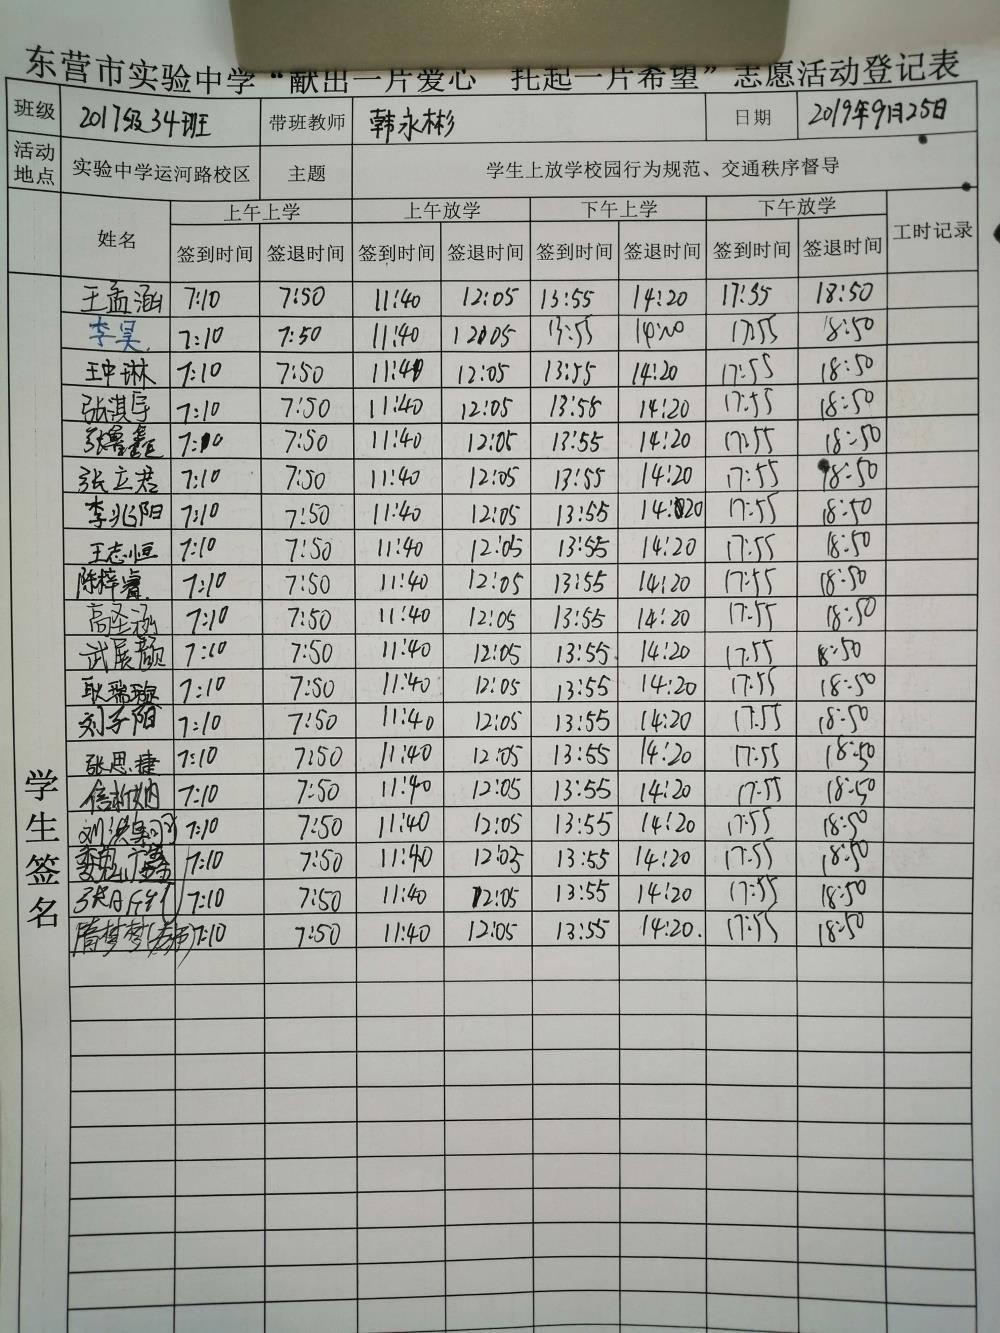 东营市实验中学“献出一片爱心 托起一片希望”志愿活动登记表
班级 2017级34班 带班教师 韩永彬 日期 2019年9月25日
活动地点 实验中学运河路校区 主题 学生上放学校园行为规范、交通秩序督导
姓名 上午上学 上午放学 下午上学 下午放学 工时记录
签到时间 签退时间 签到时间 签退时间 签到时间 签退时间 签到时间 签退时间
学生签名
王孟涵 7:10 7:50 11:40 12:05 13:55 14:20 17:55 18:50
李昊 7:10 7:50 11:40 12:05 13:55 14:20 17:55 18:50
王中琳 7:10 7:50 11:40 12:05 13:55 14:20 17:55 18:50
张淇宇 7:10 7:50 11:40 12:05 13:55 14:20 17:55 18:50
张鑫 7:10 7:50 11:40 12:05 13:55 14:20 17:55 18:50
张立君 7:10 7:50 11:40 12:05 13:55 14:20 17:55 18:50
李兆阳 7:10 7:50 11:40 12:05 13:55 14:20 17:55 18:50
王志恒 7:10 7:50 11:40 12:05 13:55 14:20 17:55 18:50
陈梓睿 7:10 7:50 11:40 12:05 13:55 14:20 17:55 18:50
高圣涵 7:10 7:50 11:40 12:05 13:55 14:20 17:55 18:50
武展颜 7:10 7:50 11:40 12:05 13:55 14:20 17:55 18:50
耿瑞璇 7:10 7:50 11:40 12:05 13:55 14:20 17:55 18:50
刘子阳 7:10 7:50 11:40 12:05 13:55 14:20 17:55 18:50
张思捷 7:10 7:50 11:40 12:05 13:55 14:20 17:55 18:50
7:10 7:50 11:40 12:05 13:55 14:20 17:55 18:50
7:10 7:50 11:40 12:05 13:55 14:20 17:55 18:50
7:10 7:50 11:40 12:05 13:55 14:20 17:55 18:50
7:10 7:50 11:40 12:05 13:55 14:20 17:55 18:50
隋梦梦 7:10 7:50 11:40 12:05 13:55 14:20. 17:55 18:50